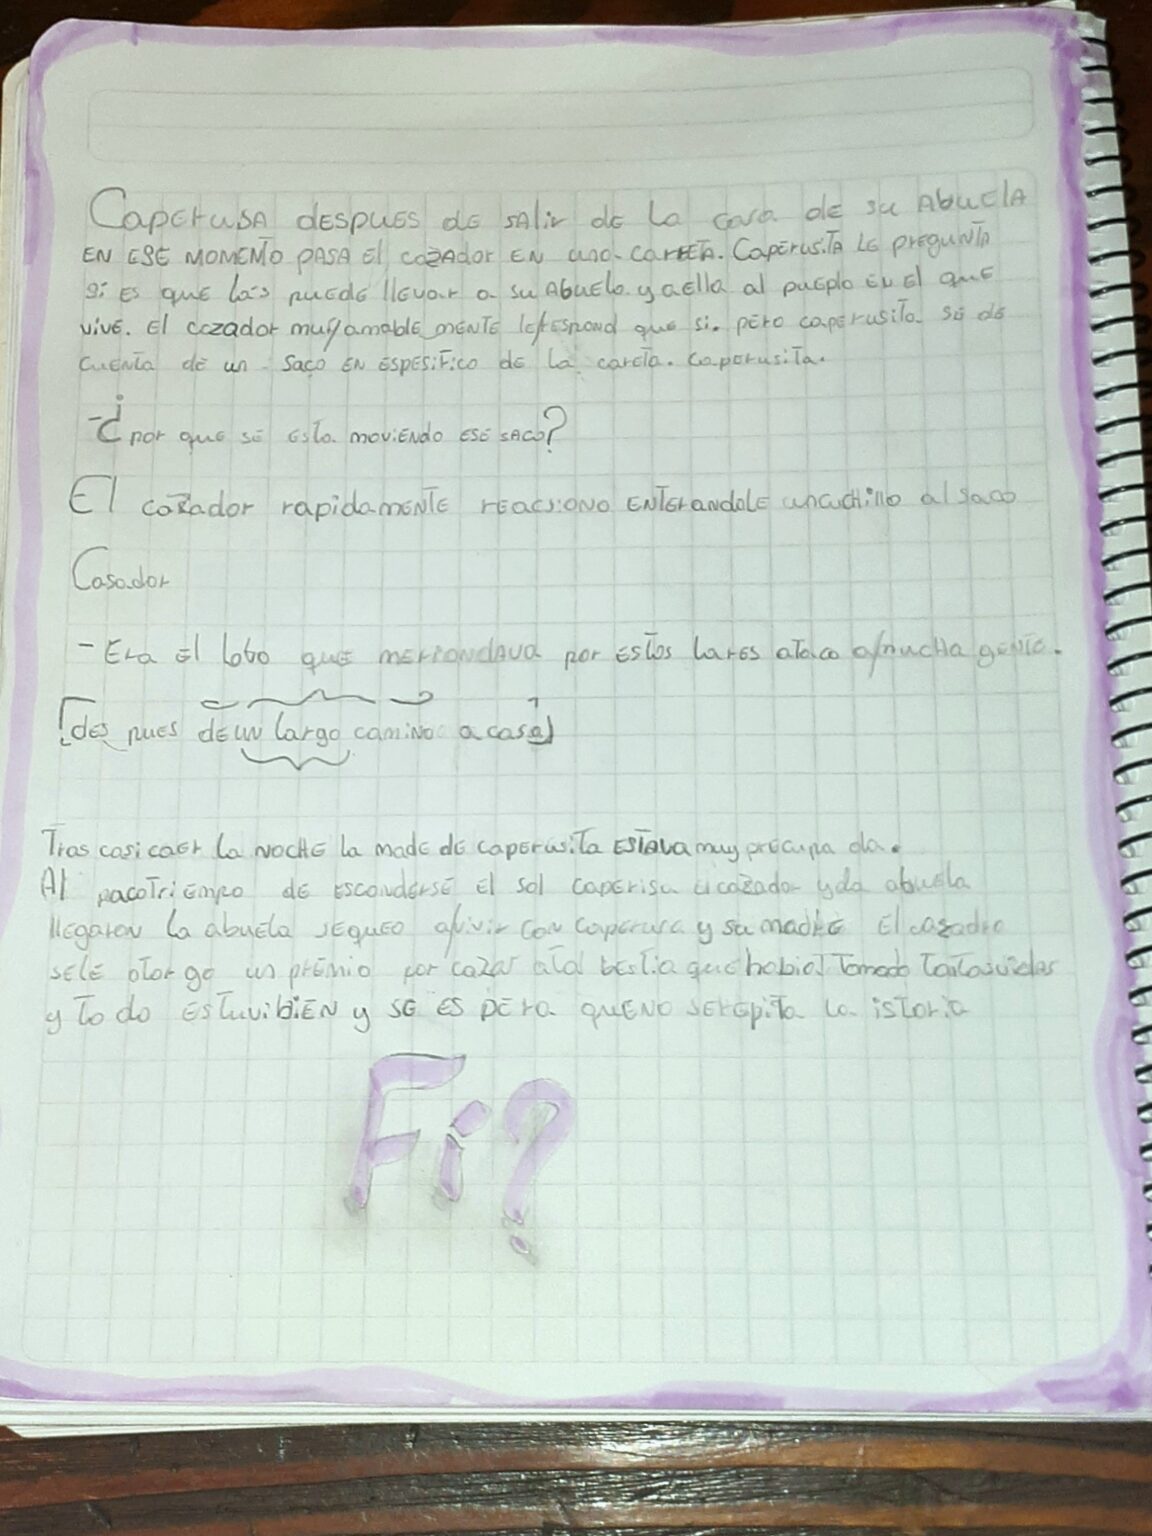 Caperusa despues de salir de la casa de su abuela
en ese momemto pasa el cazador en una carreta. Caperusita le pregunta
si es que las puede llevar a su abuela y a ella al pueplo en el que
vive. El cazador muy amable mente le respond que si. pero caperusita se de
cuenta de un saco en espesifico de la careta. caperusita.
-¿por que se esta moviendo ese saco?
El cazador rapidamente reacsiono enterandole un cuchillo al saco
Casador
- Era el lobo que merrondava por estos lares ataco a mucha gente.
[des pues de un largo camino a casa]
Tras casi caer la noche la made de caperusita estava muy precupa da.
Al pacotriempo de esconderse el sol caperisa el cazador y da abuela
llegaron la abuela sequeo a vivir con caperusa y su madre El cazadro
se le otor go un premio por cazar a tal bestia que habia tomado tantas vidas
y to do estuvibien y se es pera que no serepita la istoria
Fi?